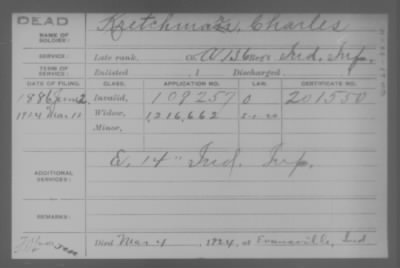 DEAD
NAME OF SOLDIER:
Kretchmar, Charles
SERVICE:
Late rank, Co. A 136 Regt Ind. Inf.
TERM OF SERVICE:
Enlisted , 1 Discharged , 1
DATE OF FILING. CLASS. APPLICATION NO. LAW. CERTIFICATE NO.
1886 June 2 Invalid, 109257 201550
1924 Mar. 12 Widow, 1,216,662
Minor,
ADDITIONAL SERVICES:
E. 14" Ind. Inf.
REMARKS:
Died Mar 4, 1924, at Evansville, Ind.